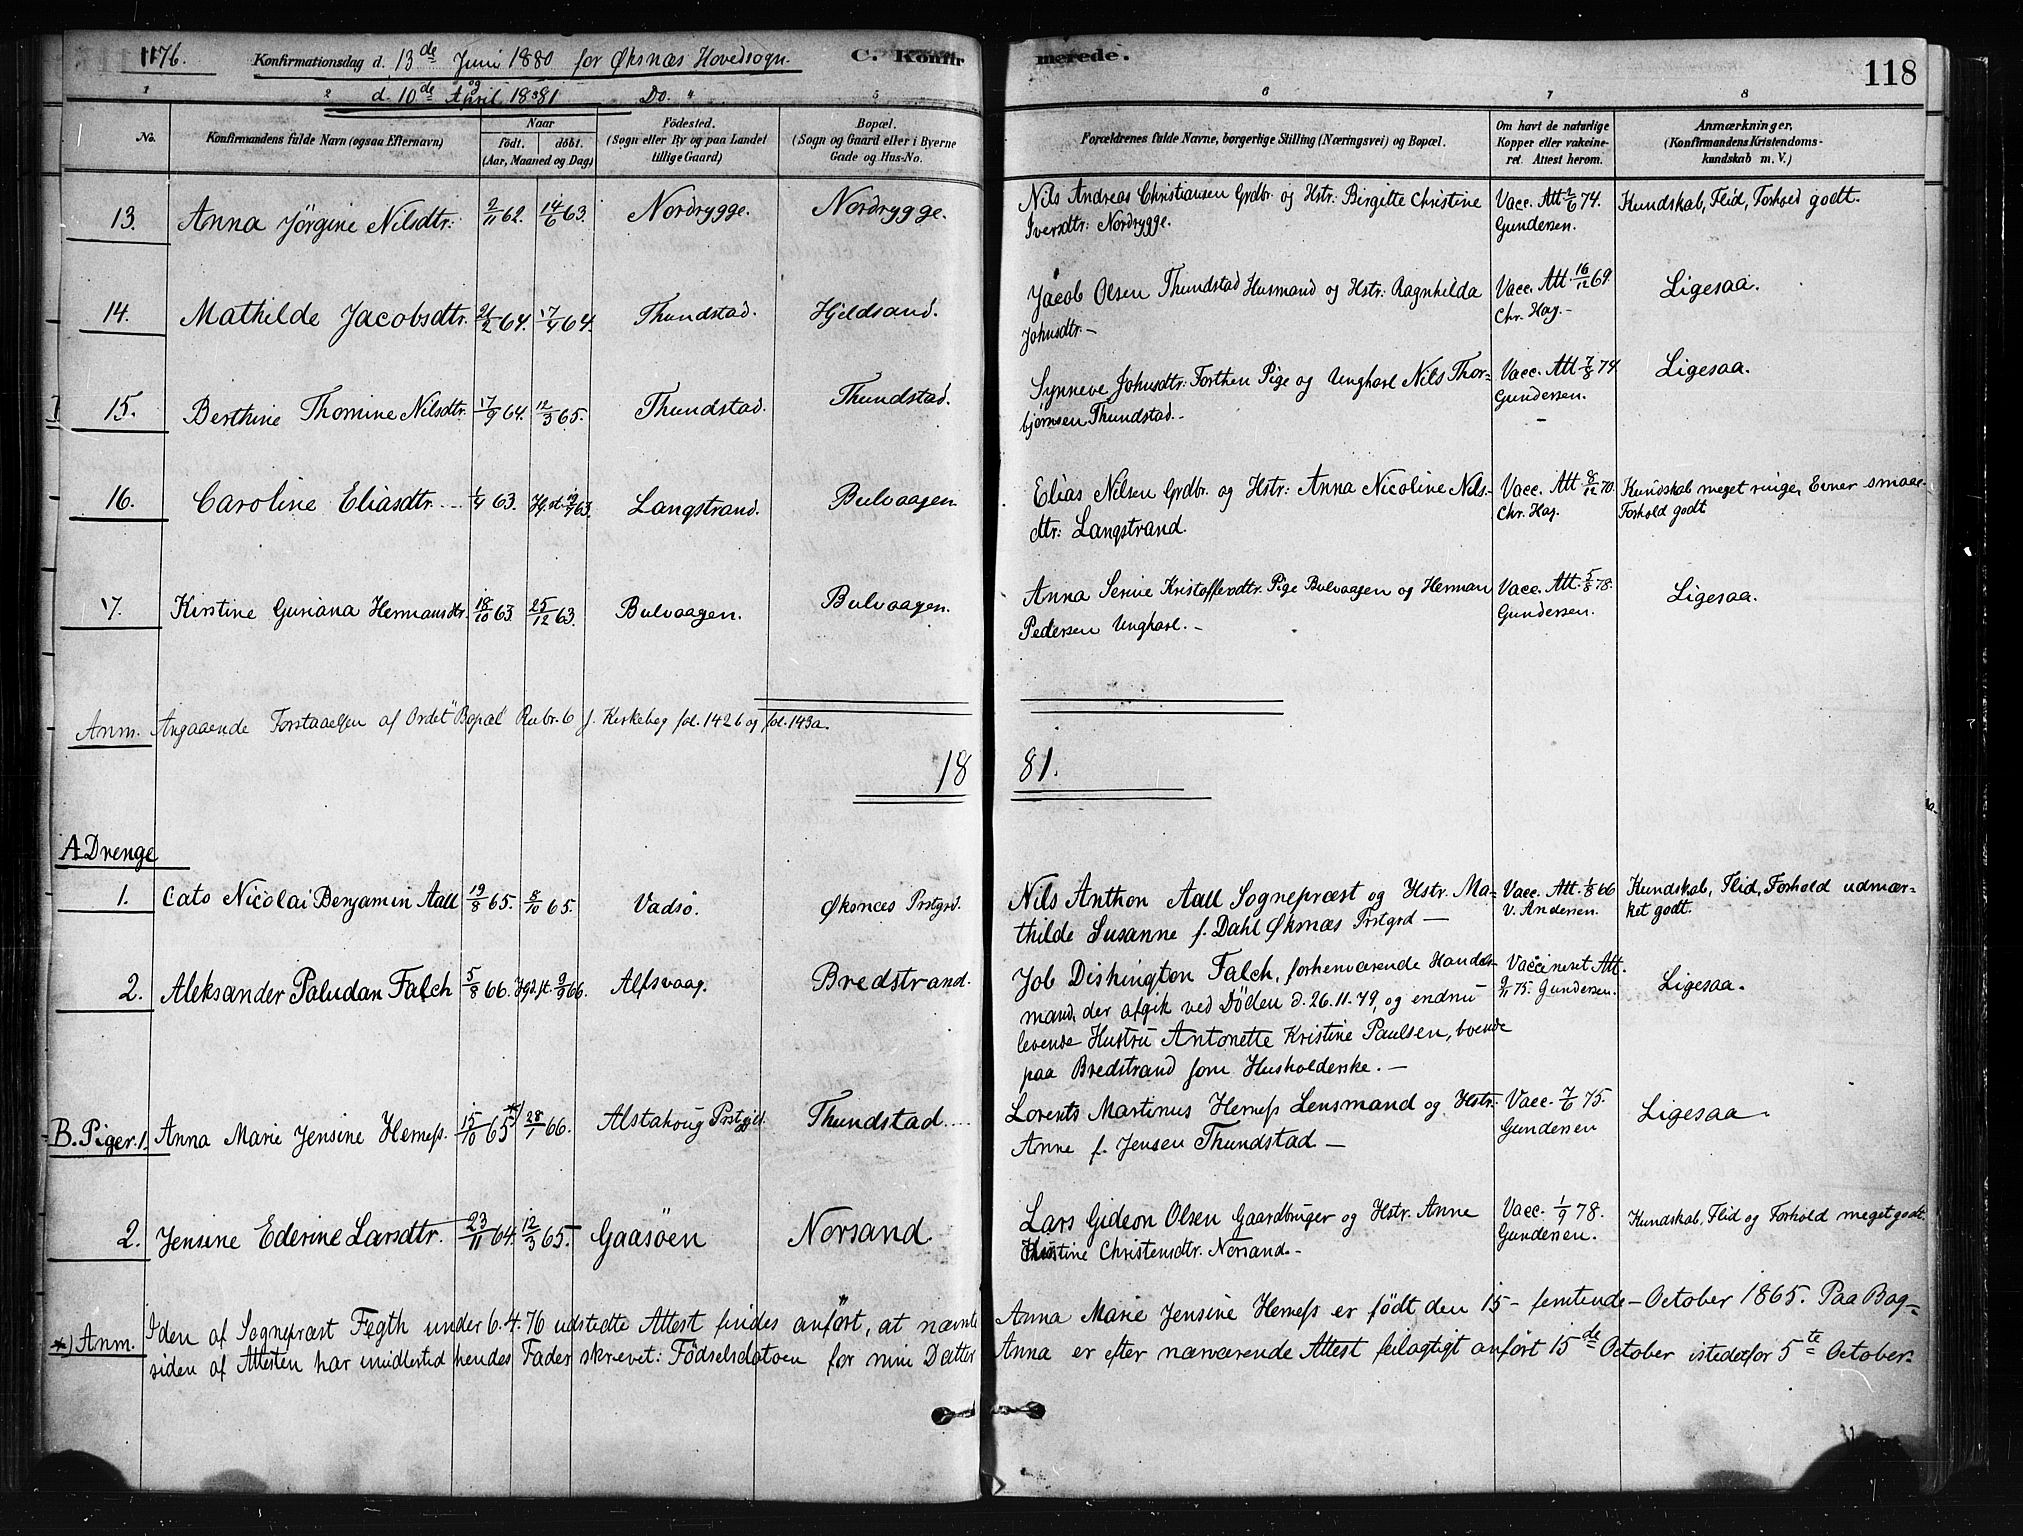 1176. Konfirmationsdag d. 13de Juni 1880 for Øksnæs Hovedsogn. C. Konfir merede. 118
og
d. 10de April 1881 Do.
1 2 4 5 6 7 8
No. Konfirmandens fulde Navn (ogsaa Efternavn) Naar født. døbt. (Aar, Maaned og Dag) Fødested. (Sogn eller By og paa Landet tillige Gaard) Bopæl. (Sogn og Gaard eller i Byerne Gade og Hus-No. Forældrenes fulde Navne, borgerlige Stilling (Næringsvei) og Bopæl. Om havt de naturlige Kopper eller vakcineret. Attest herom. Anmærkninger, (Konfirmandens Kristendomskundskab m. V.)
13. Anna Jörgine Nilsdtr: 2/11 62. 14/6 63. Nordrygge. Nordrygge. Nils Andreas Christiansen Grdbr. og Hstr: Birgitte Christine Vacc. Att 2/6 74. Kundskab, Flid, Forhold godt.
Iversdtr: Nordrygge. Gundersen.
14. Mathilde Jacobsdtr. 21/2 64. 17/4 64. Thundstad. Hjeldsand. Jacob Olsen Thundstad Husmand og Hstr: Ragnhilda Vacc. Att. 16/12 69. Ligesaa.
Johnsdtr.— Chr. Hag.—
15. Berthine Thomine Nilsdtr. 17/9 64. 12/3 65. Thundstad. Thundstad. Synneve Johnsdtr: Forthen Pige og Ungkarl Nils Thor- Vacc. Att 7/8 74 Ligesaa.
bjørnsen Thundstad.— Gundersen.
16. Caroline Eliasdtr. 1/4 63. Langstrand. Bulvaagen. Elias Nilsen Grdbr. og Hstr: Anna Nicoline Nils- Vacc. Att 8/12 70. Kundskab meget ringe, Evner smaae
dtr: Langstrand. Chr. Hag. Forhold godt.
17. Kirstine Guriana Hermansdtr. 18/10 63. 25/12 63. Bulvaagen. Bulvaagen. Anna Serine Kristoffersdtr. Pige Bulvaagen og Herman Vacc. Att. 5/8 78. Ligesaa.
Pedersen Ungkarl.— Gundersen.
Anm. Angaaende Forstaaelsen af Ordet "Bopæl" Rubr. 6 f. Kirkebog fol. 142 b og fol. 143a.
18 81.
A Drenge
1. Cato Nicolai Benjamin Aall 19/8 65. 8/10 65. Vadsø. Øksnæs Prstgrd. Nils Anthon Aall Sognepræst og Hstr. Ma- Vacc. Att. 1/8 66 Kundskab, Flid, Forhold udmær-
thilde Susanne f. Dahl Øksnæs Prstgrd — V. Andersen. ket godt.
2. Aleksander Paludan Falch 5/8 66. 9/9 66. Alfsvaag. Bredstrand. Job Dishington Falch, forhenværende Handels- Vaccineret Att. Ligesaa.
mand, der afgik ved Döden d. 26.11.79, og endnu 9/11 75. Gundersen.
levende Hustru Antonette Kristine Paulsen, boende
paa Bredstrand som Husholderske.—
B. Piger. 1. Anna Marie Jensine Herness. 15/10 65 *) 28/1 66. Alstahoug Prstgjld. Thundstad. Lorents Martinus Herness Lensmand og Hstr: Vacc. 7/6 75. Ligesaa
Anne f. Jensen Thundstad — Gundersen
2. Jensine Ederine Larsdtr. 23/11 64. 12/3 65. Gaasöen Norsand. Lars Gideon Olsen Gaardbruger og Hstr. Anne Vacc. 1/9 78. Kundskab, Flid og Forhold meget godt.
Christine Christensdtr. Norsand.— Gundersen.
*) Anm. I den af Sognepræst Fegth under 6.4.76 udstedte Attest findes anført, at nævnte Anna Marie Jensine Herness er født den 15 — femtende — October 1865. Paa Bag-
siden af Attesten har imidlertid hendes Fader skrevet: Födselsdatoen for min Datter Anna er efter nærværende Attest feilagtigt anført 15de October istedetfor 5te October.